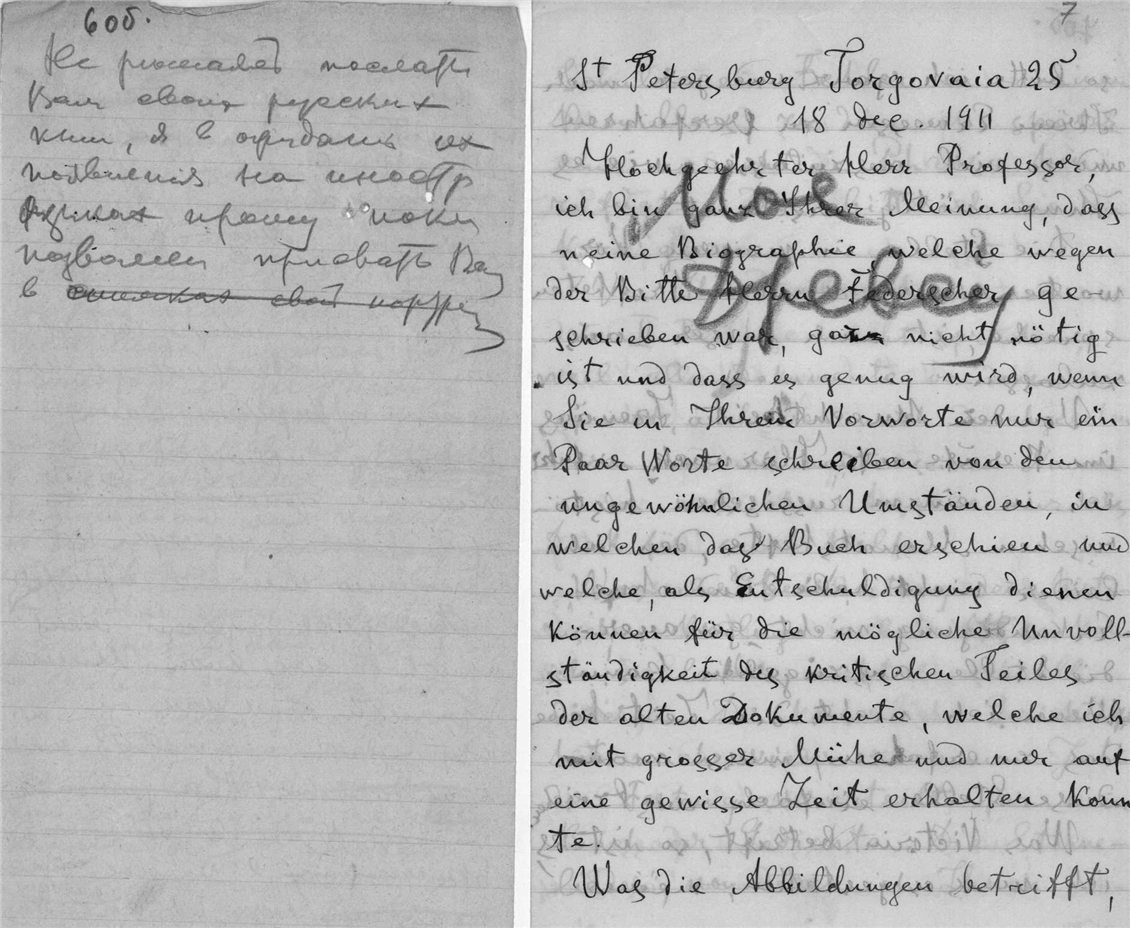 6об.
Не решаясь послать
Вам своих русских
книг, я в ожидании их
появления на иностр
языках прошу пока
позволить прислать Вам
в свой портрет
7
St Petersburg Torgovaia 25
18 dec. 1911
Hochgeehrter Herr Professor,
ich bin ganz Ihrer Meinung, dass
meine Biographie, welche wegen
der Bitte Herrn Federscher ge-
schrieben war, ganz nicht nötig
ist und dass es genug wird, wenn
Sie in Ihrem Vorworte nur ein
Paar Worte schreiben von den
ungewöhnlichen Umständen, in
welchen das Buch erschien und
welche, als Entschuldigung dienen
können für die mögliche Unvoll-
ständigkeit des kritischen Teiles
der alten Dokumente, welche ich
mit grosser Mühe und nur auf
eine gewisse Zeit erhalten konn
te.
Was die Abbildungen betrifft,
Мое